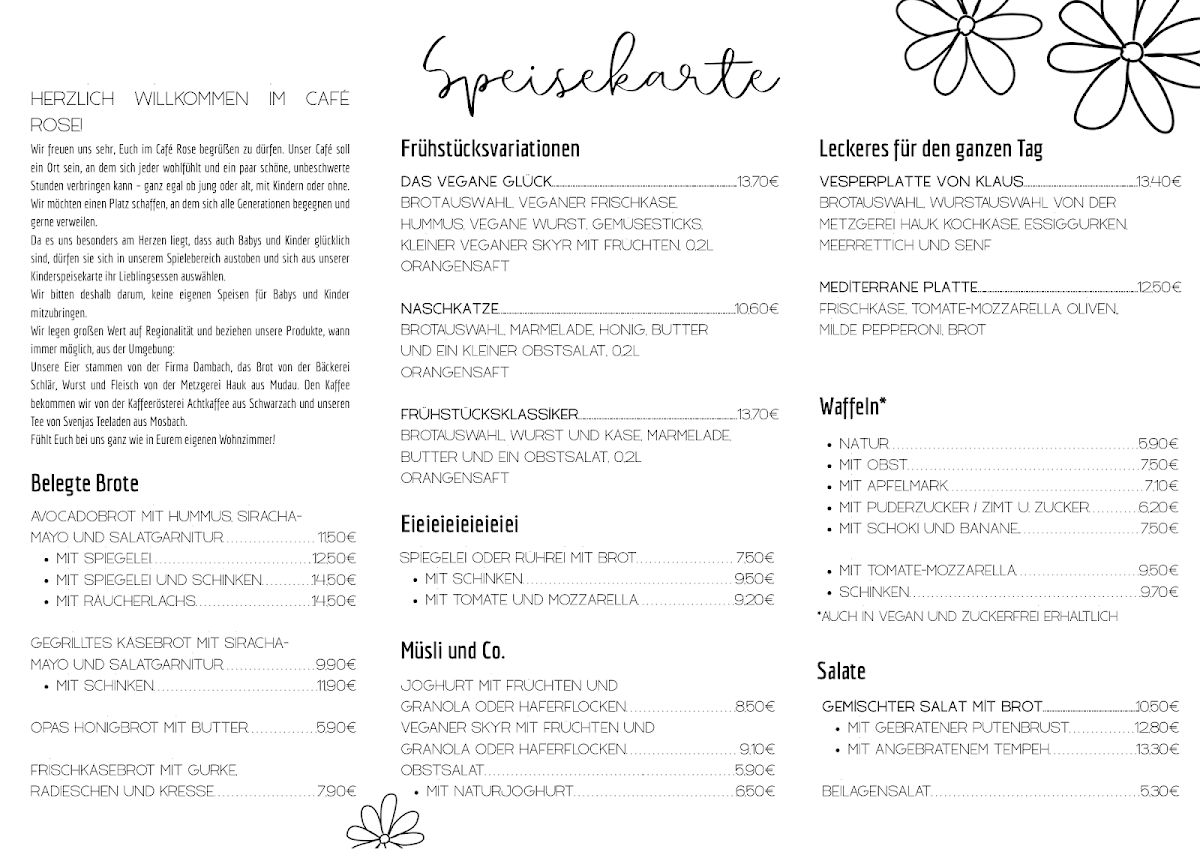 Speisekarte
HERZLICH WILLKOMMEN IM CAFÉ
ROSE!
Wir freuen uns sehr, Euch im Café Rose begrüßen zu dürfen. Unser Café soll
ein Ort sein, an dem sich jeder wohlfühlt und ein paar schöne, unbeschwerte
Stunden verbringen kann – ganz egal ob jung oder alt, mit Kindern oder ohne.
Wir möchten einen Platz schaffen, an dem sich alle Generationen begegnen und
gerne verweilen.
Da es uns besonders am Herzen liegt, dass auch Babys und Kinder glücklich
sind, dürfen sie sich in unserem Spielebereich austoben und sich aus unserer
Kinderspeisekarte ihr Lieblingsessen auswählen.
Wir bitten deshalb darum, keine eigenen Speisen für Babys und Kinder
mitzubringen.
Wir legen großen Wert auf Regionalität und beziehen unsere Produkte, wann
immer möglich, aus der Umgebung:
Unsere Eier stammen von der Firma Dambach, das Brot von der Bäckerei
Schlär, Wurst und Fleisch von der Metzgerei Hauk aus Mudau. Den Kaffee
bekommen wir von der Kaffeerösterei Achtkaffee aus Schwarzach und unseren
Tee von Svenjas Teeladen aus Mosbach.
Fühlt Euch bei uns ganz wie in Eurem eigenen Wohnzimmer!
Belegte Brote
AVOCADOBROT MIT HUMMUS, SIRACHA-
MAYO UND SALATGARNITUR 11,50€
• MIT SPIEGELEI 12,50€
• MIT SPIEGELEI UND SCHINKEN 14,50€
• MIT RÄUCHERLACHS 14,50€
GEGRILLTES KÄSEBROT MIT SIRACHA-
MAYO UND SALATGARNITUR 9,90€
• MIT SCHINKEN 11,90€
OPAS HONIGBROT MIT BUTTER 5,90€
FRISCHKÄSEBROT MIT GURKE,
RADIESCHEN UND KRESSE 7,90€
Frühstücksvariationen
DAS VEGANE GLÜCK 13,70€
BROTAUSWAHL, VEGANER FRISCHKÄSE,
HUMMUS, VEGANE WURST, GEMÜSESTICKS,
KLEINER VEGANER SKYR MIT FRÜCHTEN, 0,2L
ORANGENSAFT
NASCHKATZE 10,60€
BROTAUSWAHL, MARMELADE, HONIG, BUTTER
UND EIN KLEINER OBSTSALAT, 0,2L
ORANGENSAFT
FRÜHSTÜCKSKLASSIKER 13,70€
BROTAUSWAHL, WURST UND KÄSE, MARMELADE,
BUTTER UND EIN OBSTSALAT, 0,2L
ORANGENSAFT
Eieieieieieieiei
SPIEGELEI ODER RÜHREI MIT BROT 7,50€
• MIT SCHINKEN 9,50€
• MIT TOMATE UND MOZZARELLA 9,20€
Müsli und Co.
JOGHURT MIT FRÜCHTEN UND
GRANOLA ODER HAFERFLOCKEN 8,50€
VEGANER SKYR MIT FRÜCHTEN UND
GRANOLA ODER HAFERFLOCKEN 9,10€
OBSTSALAT 5,90€
• MIT NATURJOGHURT 6,50€
Leckeres für den ganzen Tag
VESPERPLATTE VON KLAUS 13,40€
BROTAUSWAHL, WURSTAUSWAHL VON DER
METZGEREI HAUK, KOCHKÄSE, ESSIGGURKEN,
MEERRETTICH UND SENF
MEDITERRANE PLATTE 12,50€
FRISCHKÄSE, TOMATE-MOZZARELLA, OLIVEN,
MILDE PEPPERONI, BROT
Waffeln*
• NATUR 5,90€
• MIT OBST 7,50€
• MIT APFELMARK 7,10€
• MIT PUDERZUCKER / ZIMT U. ZUCKER 6,20€
• MIT SCHOKI UND BANANE 7,50€
• MIT TOMATE-MOZZARELLA 9,50€
• SCHINKEN 9,70€
*AUCH IN VEGAN UND ZUCKERFREI ERHÄLTLICH
Salate
GEMISCHTER SALAT MIT BROT 10,50€
• MIT GEBRATENER PUTENBRUST 12,80€
• MIT ANGEBRATENEM TEMPEH 13,30€
BEILAGENSALAT 5,30€